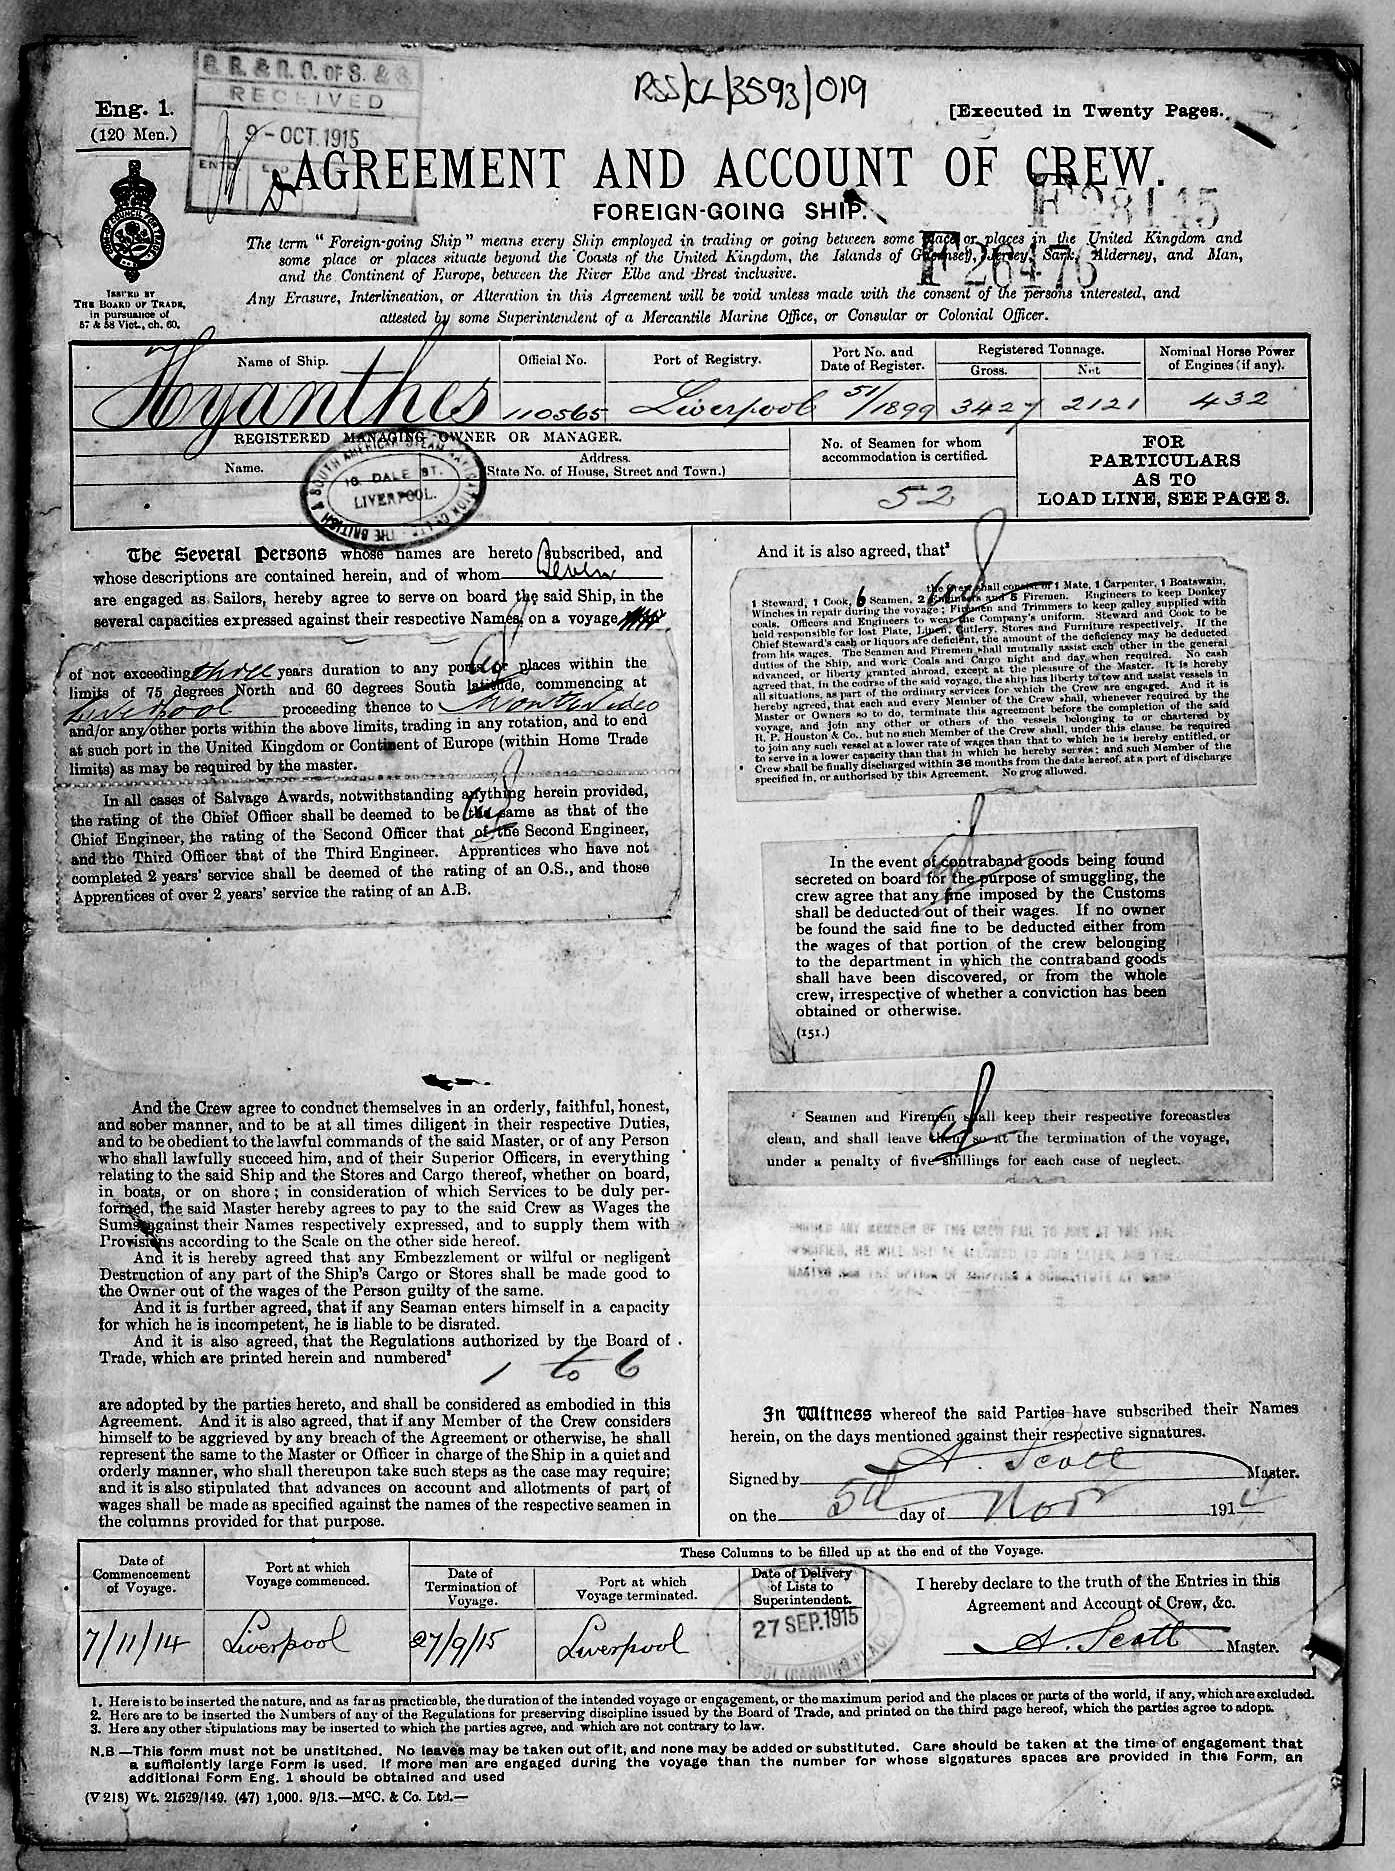 RSS/CL/3593/019
B. R. & R. O. OF S. & S.
RECEIVED
9 - OCT. 1915
Eng. 1.
(120 Men.)
[Executed in Twenty Pages.
AGREEMENT AND ACCOUNT OF CREW.
FOREIGN-GOING SHIP.
F 28145
F 26476
ISSUED BY
THE BOARD OF TRADE,
in pursuance of
57 & 58 Vict., ch. 60.
The term “Foreign-going Ship” means every Ship employed in trading or going between some place or places in the United Kingdom and
some place or places situate beyond the Coasts of the United Kingdom, the Islands of Guernsey, Jersey, Sark, Alderney, and Man,
and the Continent of Europe, between the River Elbe and Brest inclusive.
Any Erasure, Interlineation, or Alteration in this Agreement will be void unless made with the consent of the persons interested, and
attested by some Superintendent of a Mercantile Marine Office, or Consular or Colonial Officer.
Name of Ship. Official No. Port of Registry. Port No. and Date of Register. Registered Tonnage. Gross. Net Nominal Horse Power of Engines (if any).
Hyanthes 110565 Liverpool 51/1899 3427 2121 432
REGISTERED MANAGING OWNER OR MANAGER.
Name. Address.
(State No. of House, Street and Town.)
THE BRITISH & SOUTH AMERICAN STEAM NAVIGATION CO. LTD.
16, DALE ST.
LIVERPOOL.
No. of Seamen for whom
accommodation is certified.
52
FOR
PARTICULARS
AS TO
LOAD LINE, SEE PAGE 3.
The Several Persons whose names are hereto subscribed, and
whose descriptions are contained herein, and of whom Seven
are engaged as Sailors, hereby agree to serve on board the said Ship, in the
several capacities expressed against their respective Names, on a voyage
of not exceeding three years duration to any ports or places within the
limits of 75 degrees North and 60 degrees South latitude, commencing at
Liverpool proceeding thence to Montevideo
and/or any other ports within the above limits, trading in any rotation, and to end
at such port in the United Kingdom or Continent of Europe (within Home Trade
limits) as may be required by the master.
In all cases of Salvage Awards, notwithstanding anything herein provided,
the rating of the Chief Officer shall be deemed to be the same as that of the
Chief Engineer, the rating of the Second Officer that of the Second Engineer,
and the Third Officer that of the Third Engineer. Apprentices who have not
completed 2 years' service shall be deemed of the rating of an O.S., and those
Apprentices of over 2 years' service the rating of an A.B.
And the Crew agree to conduct themselves in an orderly, faithful, honest,
and sober manner, and to be at all times diligent in their respective Duties,
and to be obedient to the lawful commands of the said Master, or of any Person
who shall lawfully succeed him, and of their Superior Officers, in everything
relating to the said Ship and the Stores and Cargo thereof, whether on board,
in boats, or on shore; in consideration of which Services to be duly per-
formed, the said Master hereby agrees to pay to the said Crew as Wages the
Sums against their Names respectively expressed, and to supply them with
Provisions according to the Scale on the other side hereof.
And it is hereby agreed that any Embezzlement or wilful or negligent
Destruction of any part of the Ship's Cargo or Stores shall be made good to
the Owner out of the wages of the Person guilty of the same.
And it is further agreed, that if any Seaman enters himself in a capacity
for which he is incompetent, he is liable to be disrated.
And it is also agreed, that the Regulations authorized by the Board of
Trade, which are printed herein and numbered²
1 to 6
are adopted by the parties hereto, and shall be considered as embodied in this
Agreement. And it is also agreed, that if any Member of the Crew considers
himself to be aggrieved by any breach of the Agreement or otherwise, he shall
represent the same to the Master or Officer in charge of the Ship in a quiet and
orderly manner, who shall thereupon take such steps as the case may require;
and it is also stipulated that advances on account and allotments of part of
wages shall be made as specified against the names of the respective seamen in
the columns provided for that purpose.
And it is also agreed, that³
the crew shall consist of 1 Mate, 1 Carpenter, 1 Boatswain,
1 Steward, 1 Cook, 6 Seamen, 2 Engineers and 5 Firemen. Engineers to keep Donkey
Winches in repair during the voyage; Firemen and Trimmers to keep galley supplied with
coals. Officers and Engineers to wear the Company's uniform. Steward and Cook to be
held responsible for lost Plate, Linen, Cutlery, Stores and Furniture respectively. If the
Chief Steward's cash or liquors are deficient, the amount of the deficiency may be deducted
from his wages. The Seamen and Firemen shall mutually assist each other in the general
duties of the Ship, and work Coals and Cargo night and day when required. No cash
advanced, or liberty granted abroad, except at the pleasure of the Master. It is hereby
agreed that, in the course of the said voyage, the ship has liberty to tow and assist vessels in
all situations, as part of the ordinary services for which the Crew are engaged. And it is
hereby agreed, that each and every Member of the Crew shall, whenever required by the
Master or Owners so to do, terminate this agreement before the completion of the said
voyage, and join any other or others of the vessels belonging to or chartered by
R. P. Houston & Co., but no such Member of the Crew shall, under this clause, be required
to join any such vessel at a lower rate of wages than that to which he is hereby entitled, or
to serve in a lower capacity than that in which he hereby serves; and such Member of the
Crew shall be finally discharged within 36 months from the date hereof, at a port of discharge
specified in, or authorised by this Agreement. No grog allowed.
In the event of contraband goods being found
secreted on board for the purpose of smuggling, the
crew agree that any fine imposed by the Customs
shall be deducted out of their wages. If no owner
be found the said fine to be deducted either from
the wages of that portion of the crew belonging
to the department in which the contraband goods
shall have been discovered, or from the whole
crew, irrespective of whether a conviction has been
obtained or otherwise.
(151.)
Seamen and Firemen shall keep their respective forecastles
clean, and shall leave them so at the termination of the voyage,
under a penalty of five shillings for each case of neglect.
SHOULD ANY MEMBER OF THE CREW FAIL TO JOIN AT THE TIME
SPECIFIED, HE WILL NOT BE ALLOWED TO JOIN LATER, AND THE
MASTER HAS THE OPTION OF SHIPPING A SUBSTITUTE AT ONCE
In Witness whereof the said Parties have subscribed their Names
herein, on the days mentioned against their respective signatures.
Signed by A. Scott Master.
on the 5th day of Novr 1914
These Columns to be filled up at the end of the Voyage.
Date of Commencement of Voyage. Port at which Voyage commenced. Date of Termination of Voyage. Port at which Voyage terminated. Date of Delivery of Lists to Superintendent. I hereby declare to the truth of the Entries in this Agreement and Account of Crew, &c.
7/11/14 Liverpool 27/9/15 Liverpool 27 SEP. 1915 A. Scott Master.
1. Here is to be inserted the nature, and as far as practicable, the duration of the intended voyage or engagement, or the maximum period and the places or parts of the world, if any, which are excluded.
2. Here are to be inserted the Numbers of any of the Regulations for preserving discipline issued by the Board of Trade, and printed on the third page hereof, which the parties agree to adopt.
3. Here any other stipulations may be inserted to which the parties agree, and which are not contrary to law.
N.B—This form must not be unstitched. No leaves may be taken out of it, and none may be added or substituted. Care should be taken at the time of engagement that
a sufficiently large Form is used. If more men are engaged during the voyage than the number for whose signatures spaces are provided in this Form, an
additional Form Eng. 1 should be obtained and used
(V 218) Wt. 21529/149. (47) 1,000. 9/13.—McC. & Co. Ltd.—